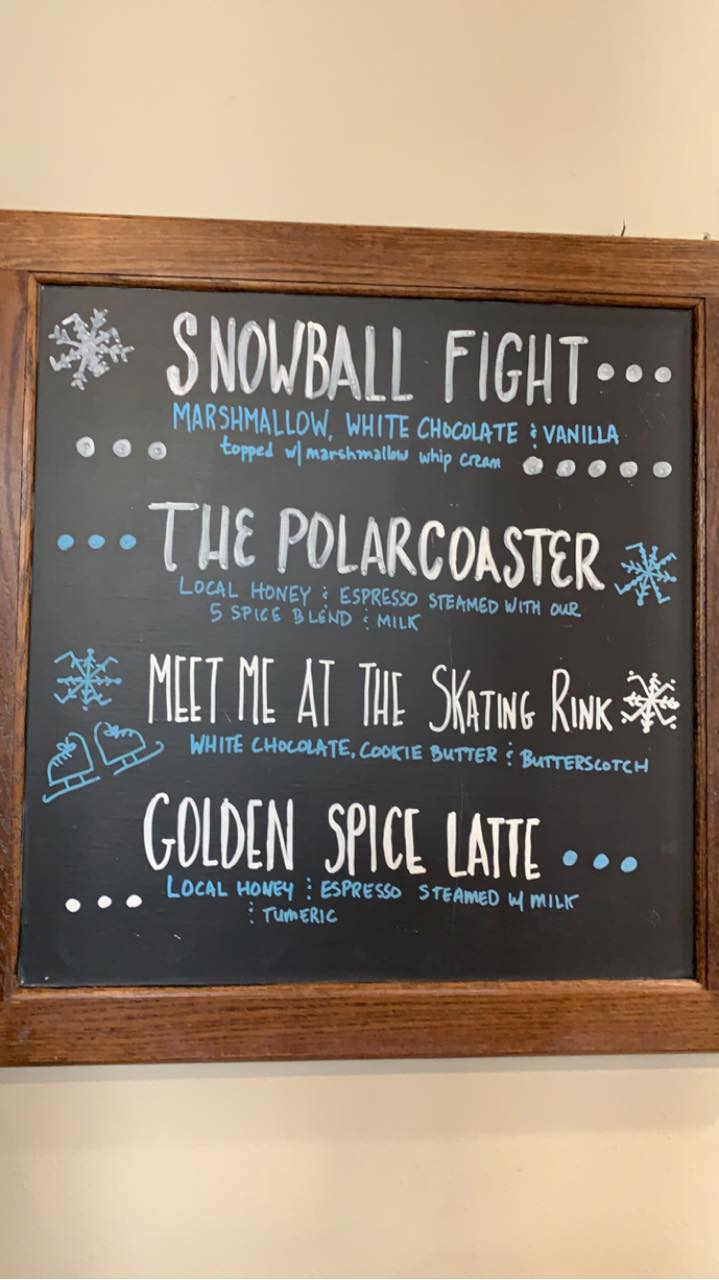 SNOWBALL FIGHT
MARSHMALLOW, WHITE CHOCOLATE & VANILLA
topped w/ marshmallow whip cream
THE POLARCOASTER
LOCAL HONEY & ESPRESSO STEAMED WITH OUR
5 SPICE BLEND & MILK
MEET ME AT THE SKATING RINK
WHITE CHOCOLATE, COOKIE BUTTER & BUTTERSCOTCH
GOLDEN SPICE LATTE
LOCAL HONEY & ESPRESSO STEAMED W/ MILK
& TUMERIC